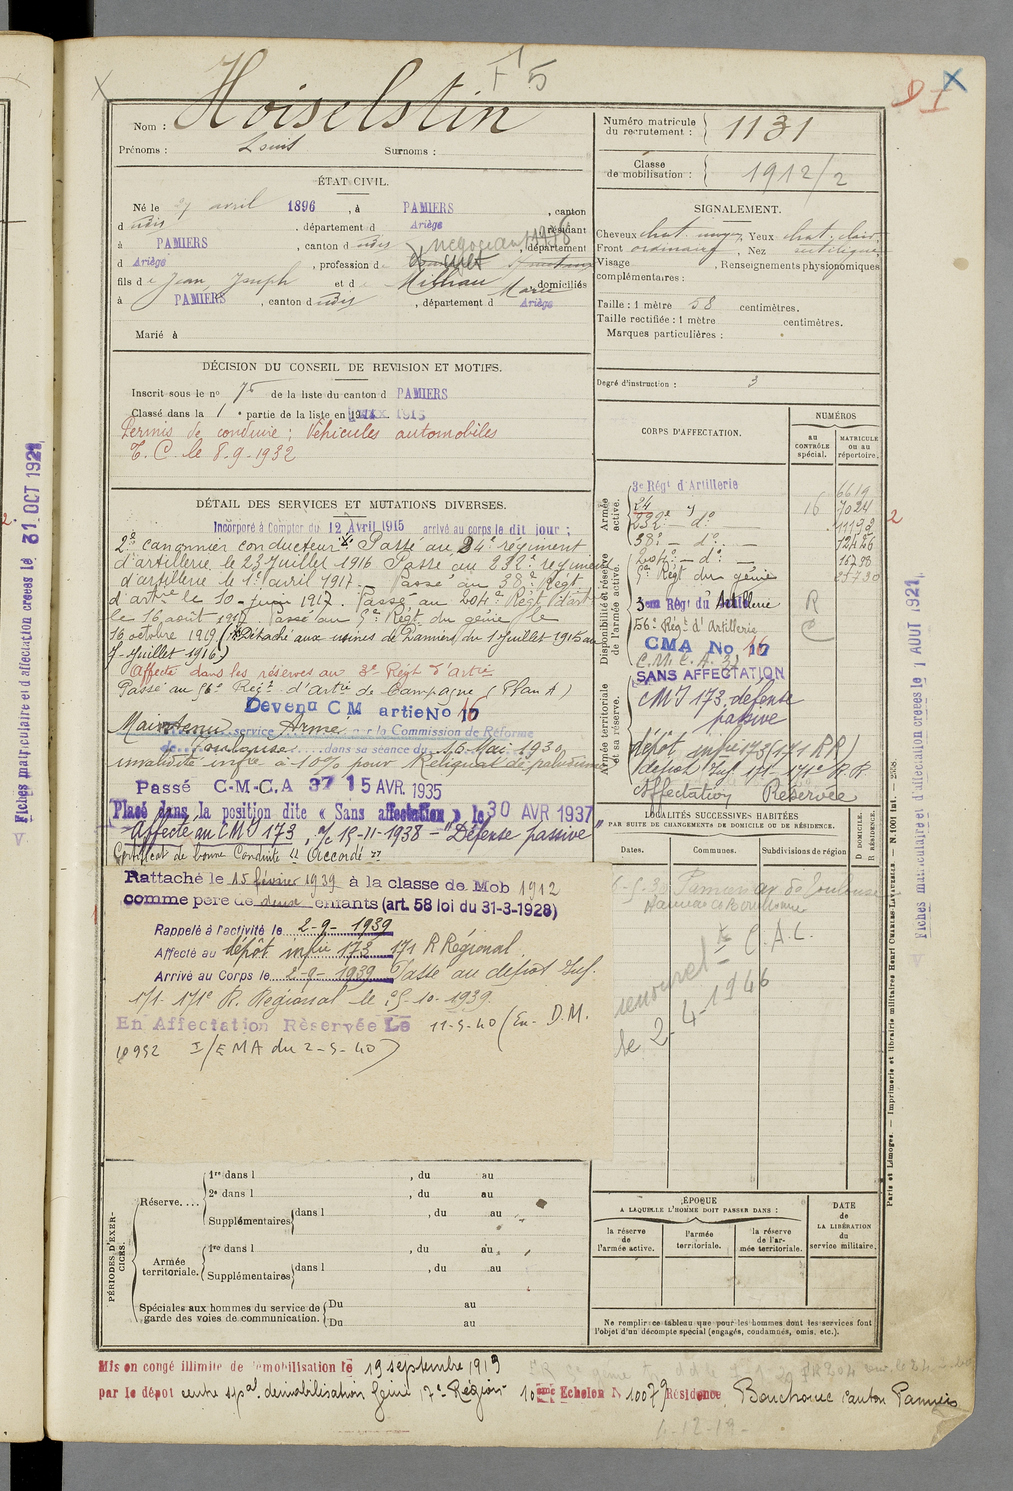 F 5
D I
Nom : Hoiselstin
Prénoms : Louis Surnoms :
Numéro matricule du recrutement : 1131
Classe de mobilisation : 1912/2
ÉTAT CIVIL.
Né le 27 avril 1896, à PAMIERS, canton
d udis, département d Ariège, résidant
à PAMIERS, canton d udis, département
d Ariège, profession d négociant
fils de Jean Joseph et de Milhau Marie, domiciliés
à PAMIERS, canton d udis, département d Ariège
Marié à
SIGNALEMENT.
Cheveux chat. moyen, Yeux chat. clair
Front ordinaire, Nez rectiligne
Visage , Renseignements physionomiques
complémentaires :
Taille : 1 mètre 58 centimètres.
Taille rectifiée : 1 mètre centimètres.
Marques particulières :
Degré d'instruction : 3
DÉCISION DU CONSEIL DE REVISION ET MOTIFS.
Inscrit sous le no 75 de la liste du canton d PAMIERS
Classé dans la 1 e partie de la liste en 1915
Permis de conduire : Véhicules automobiles
T. C. le 8-9-1932
DÉTAIL DES SERVICES ET MUTATIONS DIVERSES.
Incorporé à Compter du 12 Avril 1915 arrivé au corps le dit jour ;
2e canonnier conducteur. Passé au 24e régiment
d'artillerie, le 23 Juillet 1916 Passé au 232e régiment
d'artillerie le 1er avril 1917. - Passé au 38e Régt
d'artie le 10 Juin 1917. Passé au 204e Régt d'art
le 16 août 1917. Passé au 5e Régt. du génie le
16 octobre 1919 (Détaché aux usines de Pamiers du 1 Juillet 1915 au
7 Juillet 1916)
Affecté dans les réserves au 3e Régt d'Artie
Passé au 56e Régt d'artie de Campagne (Plan A)
Devenu CM artie No 16
Maintenu service Armé par la Commission de Réforme
de Toulouse dans sa séance du 16 Mai 1930
invalidité infre à 10% pour Reliquat de paludisme
Passé C-M-C.A 37 15 AVR. 1935
Placé dans la position dite « Sans affectation » le 30 AVR 1937
Affecté au CMI 173, 1/c 15-11-1938 - "Défense passive"
Certificat de bonne Conduite "Accordé"
Rattaché le 15 février 1939 à la classe de Mob 1912
comme père de deux enfants (art. 58 loi du 31-3-1928)
Rappelé à l'activité le 2-9-1939
Affecté au dépôt infie 173 171 R Régional
Arrivé au Corps le 2-9-1939 Passé au dépôt Inf.
171 - 171e R. Régional le 5-10-1939
En Affectation Réservée Le 11-5-40 (En. D.M.
10992 I/EMA du 2-5-40)
CORPS D'AFFECTATION.
NUMÉROS
au contrôle spécial.
matricule ou au répertoire.
Armée active.
3e Régt d'Artillerie 6619
24 16 7024
232e - do - 11193
38e - do - 12426
204e - do - 16738
5e Régt du génie 25730
Disponibilité et réserve de l'armée active.
3eme Régt d'Artillerie R
56e Régt d'Artillerie
CMA No 16
C.M.C.A. 37
SANS AFFECTATION
Armée territoriale et sa réserve.
CMI 173. défense
passive
dépôt infie 173 (171 R R)
(dépôt Inf 171 - 171e R.R
Affectation Réservée
LOCALITÉS SUCCESSIVES HABITÉES
PAR SUITE DE CHANGEMENTS DE DOMICILE OU DE RÉSIDENCE.
Dates. Communes. Subdivisions de région D DOMICILE. R RÉSIDENCE.
Pamiers av de Toulouse
C.A.C.
renouvelt
le 2-4-1946
PÉRIODES D'EXERCICES.
Réserve....
1re dans l , du au
2e dans l , du au
Supplémentaires dans l , du au
Armée territoriale.
1re dans l , du au
Supplémentaires dans l , du au
Spéciales aux hommes du service de garde des voies de communication.
Du au
Du au
ÉPOQUE
A LAQUELLE L'HOMME DOIT PASSER DANS :
la réserve de l'armée active.
l'armée territoriale.
la réserve de l'armée territoriale.
DATE de LA LIBÉRATION du service militaire.
Ne remplir ce tableau que pour les hommes dont les services font
l'objet d'un décompte spécial (engagés, condamnés, omis, etc.).
Mis en congé illimité de démobilisation le 19 septembre 1919
par le dépôt centre spal. démobilisation Génie 17e Région - 10eme Echelon N 10079 Résidence, Pamiers
Fiches matriculaire et d'affectation créées le 31 OCT 1921
Fiches matriculaire et d'affectation créées le 1 AOUT 1921
Paris et Limoges. — Imprimerie et librairie militaires Henri CHARLES-LAVAUZELLE. — N. 1001 Int.